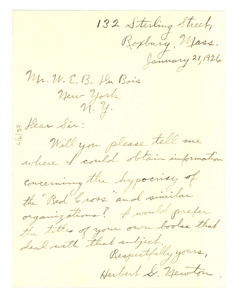 132 Sterling Street,
Roxbury, Mass.
January 21, 1926
Mr. W. E. B. Du Bois
New York
N. Y.
Dear Sir:
Will you please tell me
where I could obtain information
concerning the hypocrisy of
the "Red Cross" and similar
organizations? I would prefer
the titles of your own books that
deal with that subject.
Respectfully yours,
Herbert G. Newton.